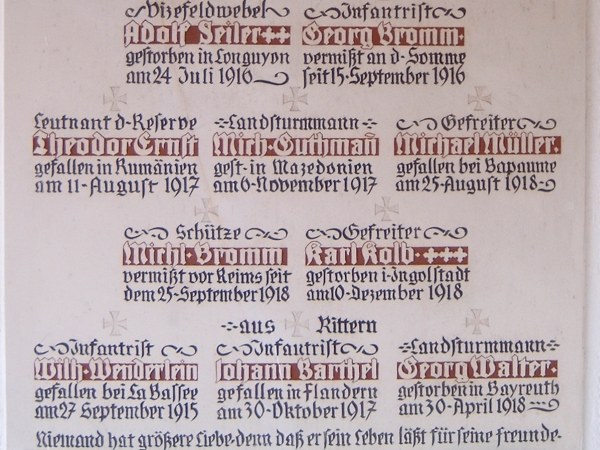 Vizefeldwebel
Adolf Seiler
gestorben in Longuyon
am 24 Juli 1916
Infantrist
Georg Bromm.
vermißt an d. Somme
seit 15. September 1916
Leutnant d. Reserve
Theodor Ernst
gefallen in Rumänien
am 11. August 1917
Landsturmmann
Mich. Guthmañ
gest. in Mazedonien
am 6. November 1917
Gefreiter
Michael Müller.
gefallen bei Bapaume
am 25. August 1918
Schütze
Michl. Bromm
vermißt vor Reims seit
dem 25. September 1918
Gefreiter
Karl Kolb.
gestorben i. Ingolstadt
am 10. Dezember 1918
aus Rittern
Infantrist
Wilh. Wenderlein
gefallen bei La Bassee
am 27 September 1915
Infantrist
Johann Barthel
gefallen in Flandern
am 30. Oktober 1917
Landsturmmann
Georg Walter.
gestorben in Bayreuth
am 30. April 1918
Niemand hat größere Liebe. denn daß er sein Leben läßt für seine freunde.